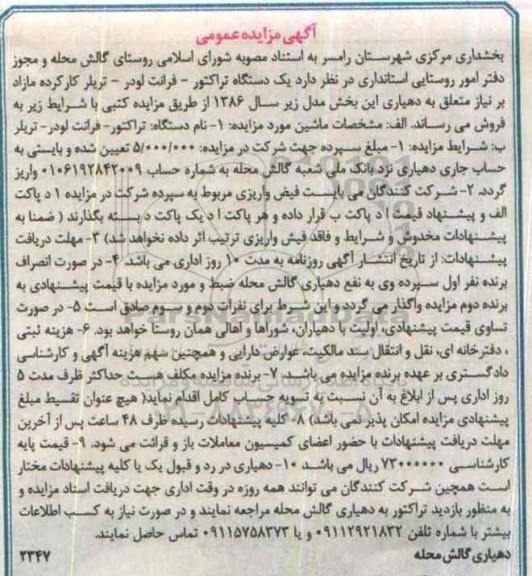 آگهی مزایده عمومی
بخشداری مرکزی شهرستان رامسر به استناد مصوبه شورای اسلامی روستای گالش محله و مجوز
دفتر امور روستایی استانداری در نظر دارد یک دستگاه تراکتور - فرانت لودر - تریلر کارکرده مازاد
بر نیاز متعلق به دهیاری این بخش مدل زیر سال ۱۳۸۶ از طریق مزایده کتبی با شرایط زیر به
فروش می رساند. الف: مشخصات ماشین مورد مزایده: ۱- نام دستگاه: تراکتور- فرانت لودر- تریلر
ب: شرایط مزایده: ۱- مبلغ سپرده جهت شرکت در مزایده: ۵/۰۰۰/۰۰۰ تعیین شده و بایستی به
حساب جاری دهیاری نزد بانک ملی شعبه گالش محله به شماره حساب ۰۱۰۶۱۹۲۸۴۲۰۰۹ واریز
گردد. ۲- شرکت کنندگان می بایست فیض واریزی مربوط به سپرده شرکت در مزایده ۱ د پاکت
الف و پیشنهاد قیمت ا د پاکت ب قرار داده و هر پاکت ا د یک پاکت د بسته بگذارند ( ضمنا به
پیشنهادات مخدوش و شرایط و فاقد فیش واریزی ترتیب اثر داده نخواهد شد) ۳- مهلت دریافت
پیشنهادات: از تاریخ انتشار آگهی روزنامه به مدت ۱۰ روز اداری می باشد. ۴- در صورت انصراف
برنده نفر اول سپرده وی به نفع دهیاری گالش محله ضبط و مورد مزایده با قیمت پیشنهادی به
برنده دوم مزایده واگذار می گردد و این شرط برای نفرات دوم و سوم صادق است ۵- در صورت
تساوی قیمت پیشنهادی، اولیت با دهیاران، شوراها و اهالی همان روستا خواهد بود. ۶- هزینه ثبتی
، دفترخانه ای، نقل و انتقال سند مالکیت، عوارض دارایی و همچنین سهم هزینه آگهی و کارشناسی
دادگستری بر عهده برنده مزایده می باشد. ۷- برنده مزایده مکلف هست حداکثر ظرف مدت ۵
روز اداری پس از ابلاغ به آن نسبت به تسویه حساب کامل اقدام نماید( هیچ عنوان تقسیط مبلغ
پیشنهادی مزایده امکان پذیر نمی باشد) ۸- کلیه پیشنهادات رسیده ظرف ۴۸ ساعت پس از آخرین
مهلت دریافت پیشنهادات با حضور اعضای کمیسیون معاملات باز و قرائت می شود. ۹- قیمت پایه
کارشناسی ۷۳۰۰۰۰۰۰ ریال می باشد ۱۰- دهیاری در رد و قبول یک یا کلیه پیشنهادات مختار
است همچنین شرکت کنندگان می توانند همه روزه در وقت اداری جهت دریافت اسناد مزایده و
به منظور بازدید تراکتور به دهیاری گالش محله مراجعه نمایند و در صورت نیاز به کسب اطلاعات
بیشتر با شماره تلفن ۰۹۱۱۲۹۲۱۸۳۲ و یا ۰۹۱۱۵۷۵۸۳۷۳ تماس حاصل نمایند.
دهیاری گالش محله ۲۳۴۷